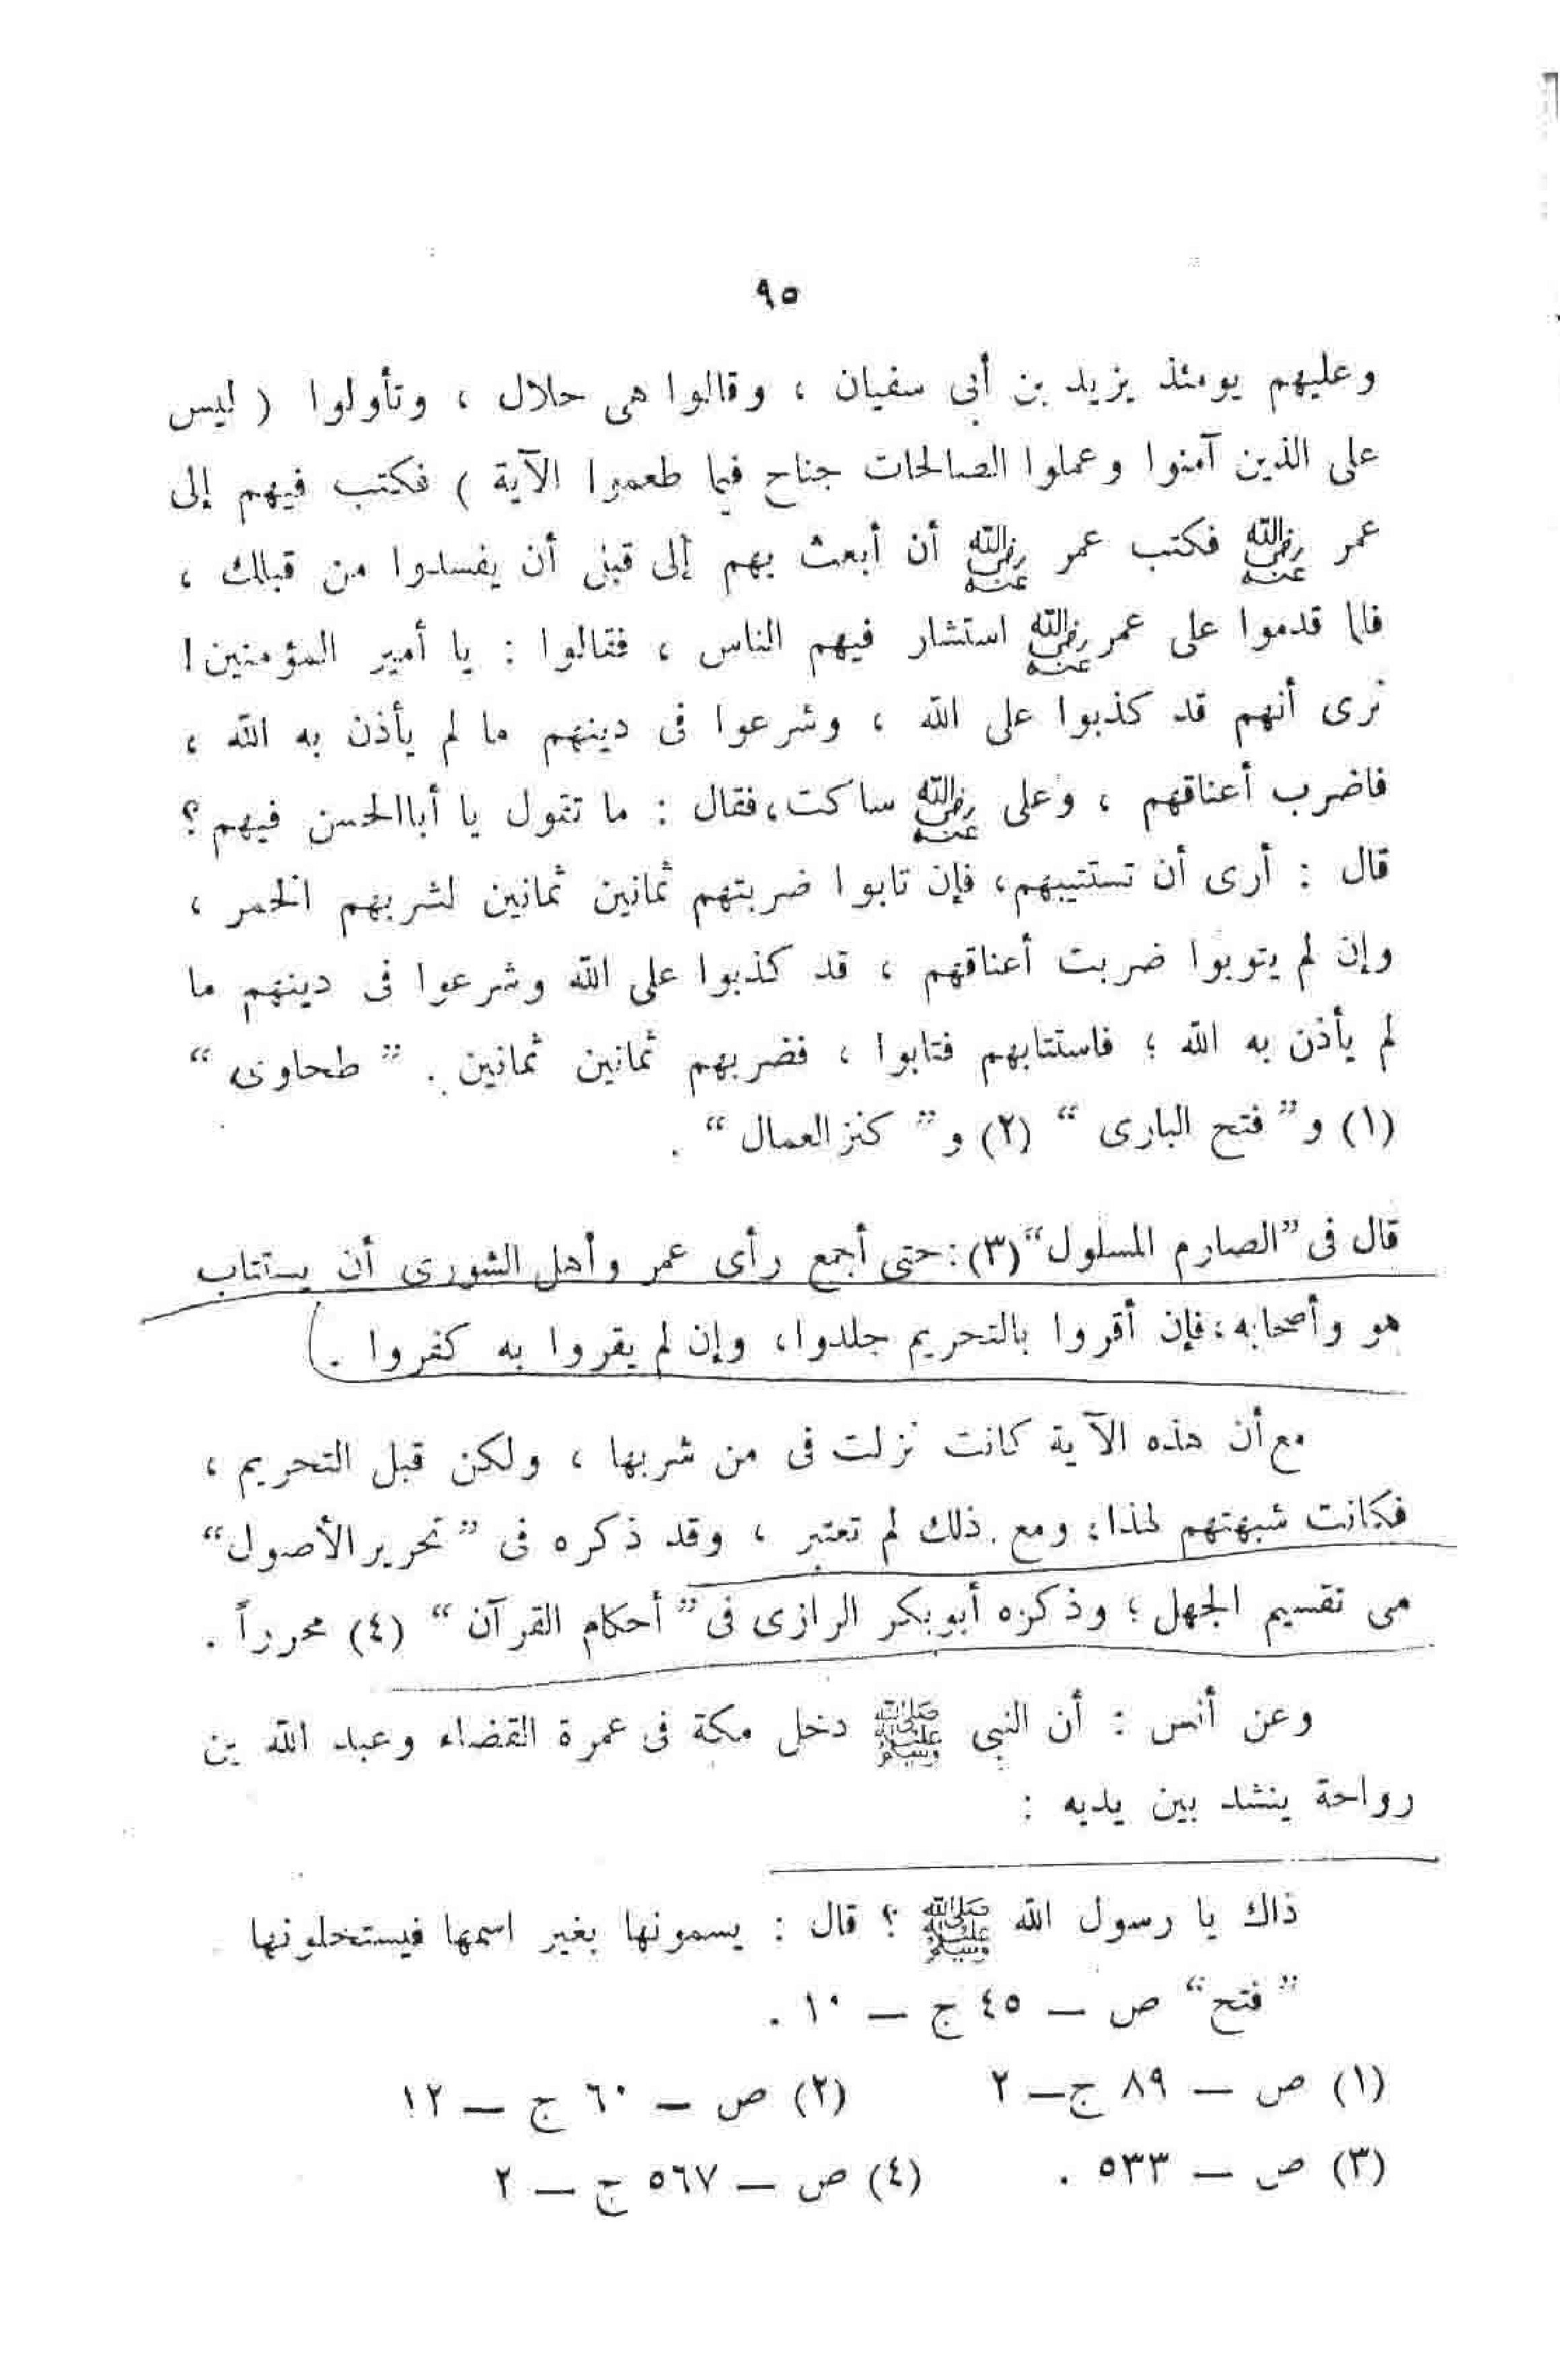 ٩٥
وعليهم يومئذ يزيد بن أبى سفيان ، وقالوا هى حلال ، وتأولوا ( ليس
على الذين آمنوا وعملوا الصالحات جناح فيما طعموا الآية ) فكتب فيهم إلى
عمر رضي الله عنه فكتب عمر رضي الله عنه أن أبعث بهم إلى قبل أن يفسدوا من قبلك ،
فلما قدموا على عمر رضي الله عنه استشار فيهم الناس ، فقالوا : يا أمير المؤمنين !
نرى أنهم قد كذبوا على الله ، وشرعوا فى دينهم ما لم يأذن به الله ،
فاضرب أعناقهم ، وعلى رضي الله عنه ساكت ، فقال : ما تقول يا أبا الحسن فيهم ؟
قال : أرى أن تستتيبهم ، فإن تابوا ضربتهم ثمانين ثمانين لشربهم الخمر ،
وإن لم يتوبوا ضربت أعناقهم ، قد كذبوا على الله وشرعوا فى دينهم ما
لم يأذن به الله ؛ فاستتابهم فتابوا ، فضربهم ثمانين ثمانين . ” طحاوى “
(١) و ” فتح البارى “ (٢) و ” كنز العمال “ .
قال فى ”الصارم المسلول“ (٣) : حتى أجمع رأى عمر وأهل الشورى أن يستتاب
هو وأصحابه ؛ فإن أقروا بالتحريم جلدوا ، وإن لم يقروا به كفروا .
مع أن هذه الآية كانت نزلت فى من شربها ، ولكن قبل التحريم ،
فكانت شبهتهم لهذا ؛ ومع ذلك لم تعتبر ، وقد ذكره فى ” تحرير الأصول “
من تقسيم الجهل ؛ وذكره أبو بكر الرازى فى ” أحكام القرآن “ (٤) محرراً .
وعن أنس : أن النبى صلى الله عليه وسلم دخل مكة فى عمرة القضاء وعبد الله بن
رواحة ينشد بين يديه :
ذاك يا رسول الله صلى الله عليه وسلم ؟ قال : يسمونها بغير اسمها فيستحلونها
” فتح “ ص – ٤٥ ج – ١٠ .
(١) ص – ٨٩ ج – ٢ (٢) ص – ٦٠ ج – ١٢
(٣) ص – ٥٣٣ . (٤) ص – ٥٦٧ ج – ٢